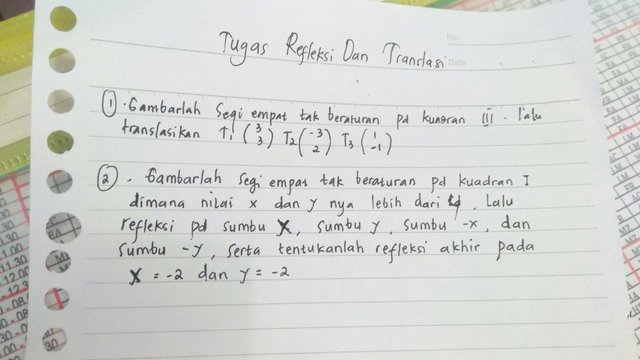 No.
Date
Tugas Refleksi Dan Translasi
① . Gambarlah Segi empat tak beraturan pd kuadran III . lalu
translasikan T₁ (3 3) T₂ (-3 2) T₃ (1 -1)
② . Gambarlah segi empat tak beraturan pd kuadran I
dimana nilai x dan y nya lebih dari 4 . Lalu
refleksi pd sumbu X, sumbu y, sumbu -x, dan
sumbu -y, serta tentukanlah refleksi akhir pada
X = -2 dan y = -2